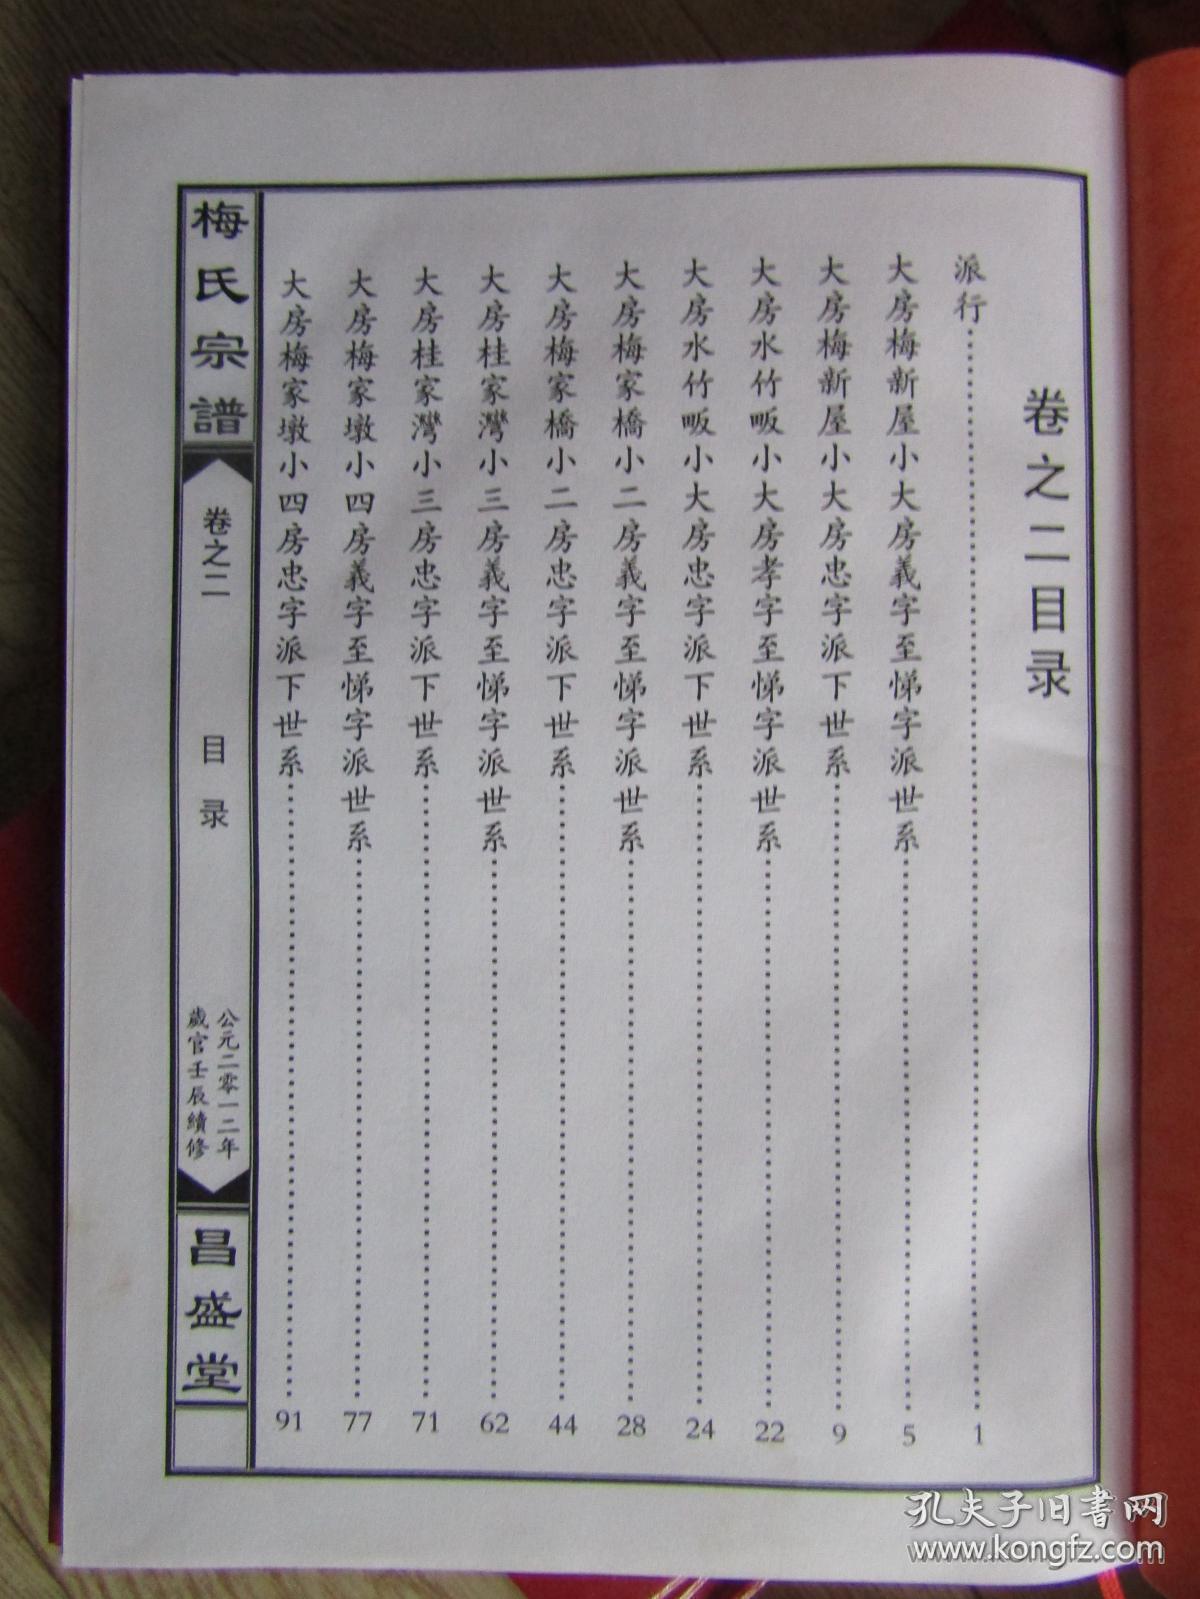 卷之二目录
派行 1
大房梅新屋小大房義字至悌字派世系 5
大房梅新屋小大房忠字派下世系 9
大房水竹畈小大房孝字至悌字派世系 22
大房水竹畈小大房忠字派下世系 24
大房梅家橋小二房義字至悌字派世系 28
大房梅家橋小二房忠字派下世系 44
大房桂家灣小三房義字至悌字派世系 62
大房桂家灣小三房忠字派下世系 71
大房梅家墩小四房義字至悌字派世系 77
大房梅家墩小四房忠字派下世系 91
梅氏宗譜
卷之二
目录
公元二零一二年
歲官壬辰續修
昌盛堂
孔夫子旧书网
www.kongfz.com